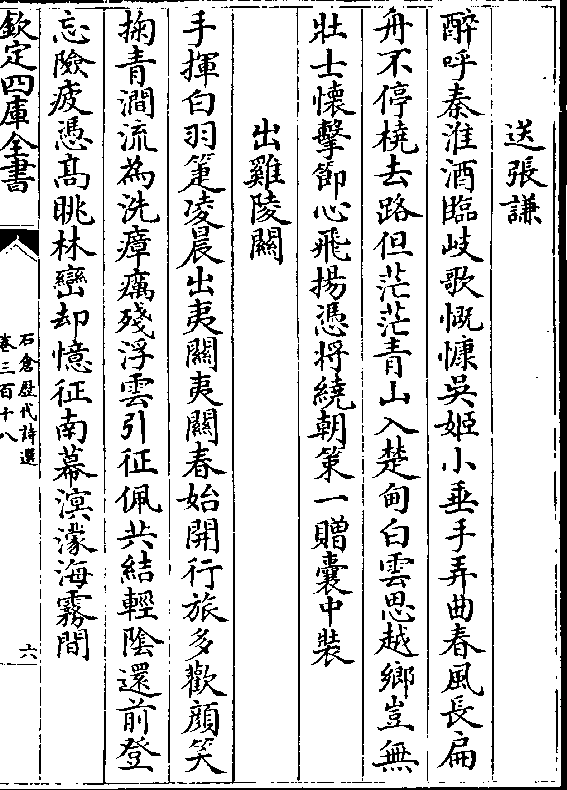 送張謙
醉呼秦淮酒臨歧歌慨慷吳姬小垂手弄曲春風長扁
舟不停橈去路但茫茫青山入楚甸白雲思越鄉豈無
壯士懷擊節心飛揚憑将繞朝策一贈囊中裝
出雞陵關
手揮白羽箑凌晨出夷關夷關春始開行旅多歡顔笑
掬青澗流為洗瘴癘殘浮雲引征佩共結輕陰還前登
忘險疲憑髙眺林巒却憶征南幕溟濛海霧間
欽定四庫全書
石倉歴代詩選
卷三百十八
六